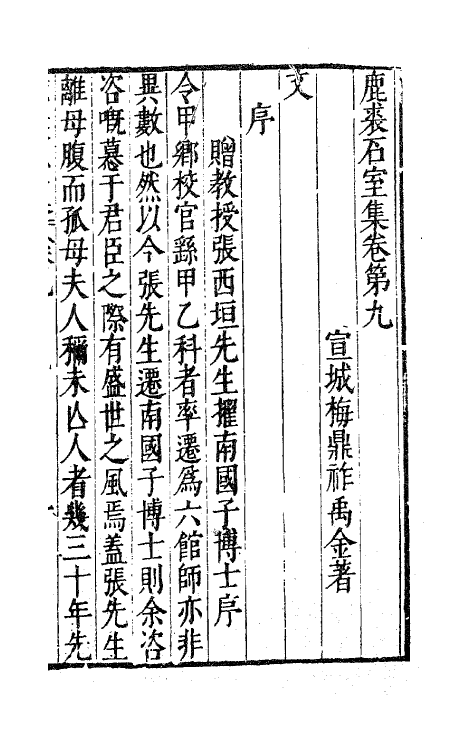 鹿裘石室集卷第九
宣城梅鼎祚禹金著
文
序
贈教授張西垣先生擢南國子博士序
令甲鄉校官繇甲乙科者率遷爲六館師亦非
異數也然以今張先生遷南國子博士則余咨
咨嘅慕于君臣之際有盛世之風焉蓋張先生
離母腹而孤母夫人稱未亾人者幾三十年先